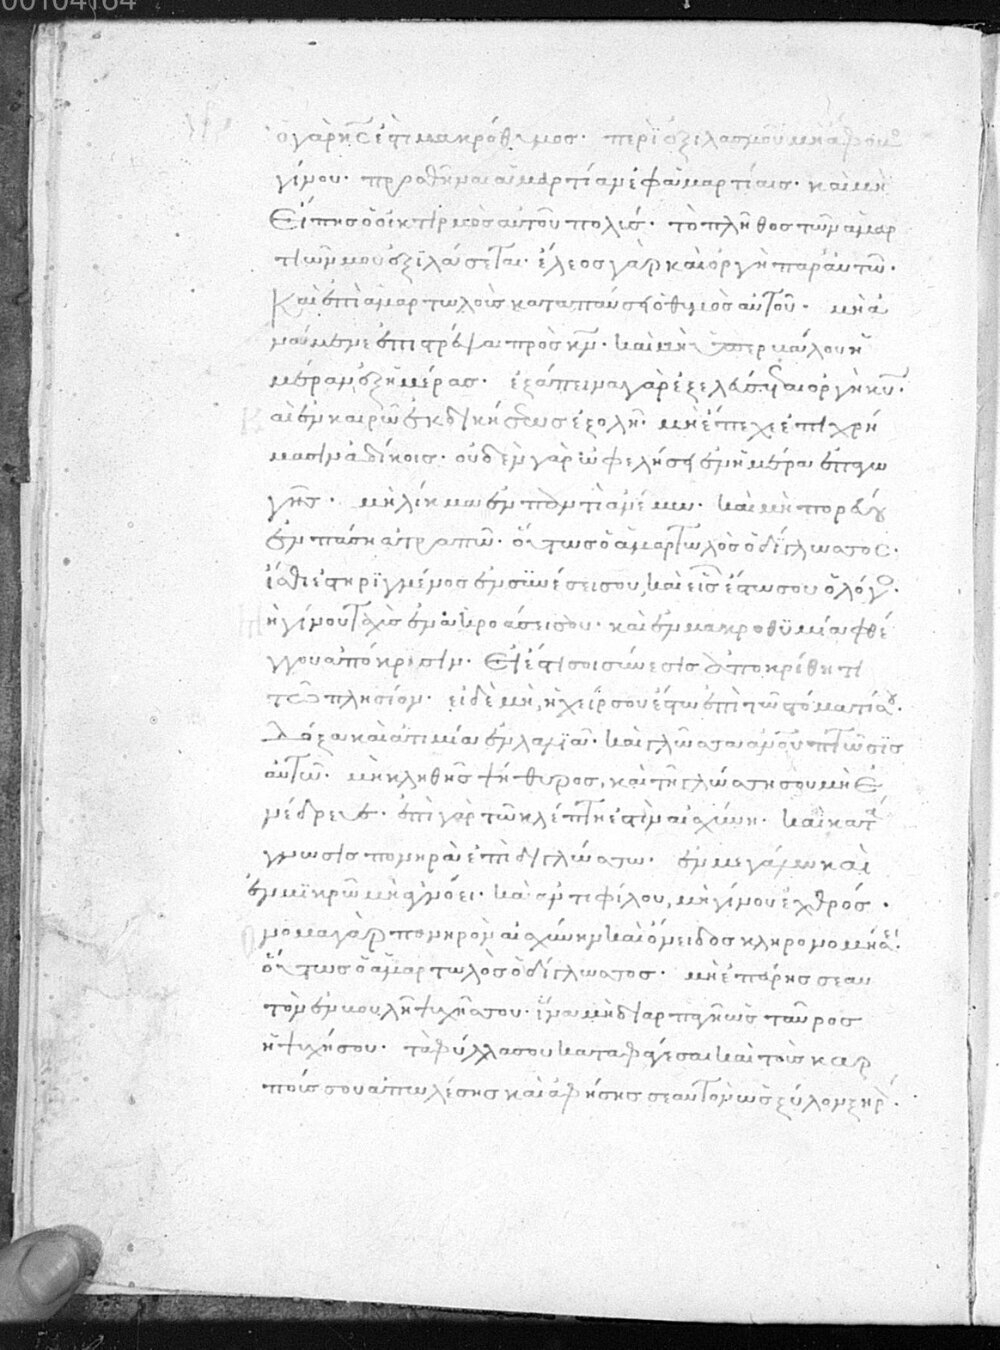 00104164
ὁ γὰρ κ̅ς ἐστὶ μακρόθυμος· περὶ ἐξιλασμοῦ μὴ ἄφοβος
γίνου· προσθῆναι ἁμαρτίαν ἐφ ἁμαρτίαις· καὶ μὴ
εἴπης ὁ οἰκτιρμὸς αὐτοῦ πολύς· τὸ πλῆθος τῶν ἁμαρ
τιῶν μου ἐξιλάσεται· ἔλεος γὰρ καὶ ὀργὴ παρ' αὐτῶ·
Καὶ ἐπὶ ἁμαρτωλοὺς καταπαύσει ὁ θυμὸς αὐτοῦ· μὴ ἀ
νάμενε ἐπιστρέψαι πρὸς κ̅ν· καὶ μὴ ὑπερβάλου ἡ
μέραν ἐξ ἡμέρας· ἐξάπινα γὰρ ἐξελεύσεται ὀργὴ κ̅υ·
Καὶ ἐν καιρῶ ἐκδικήσεως ἐξολῆ· μὴ ἔπεχε ἐπὶ χρή
μασιν ἀδίκοις· οὐδὲν γὰρ ὠφελήσει ἐν ἡμέρα ἐπαγω
γῆς· μὴ λίκμα ἐν παντὶ ἀνέμω· καὶ μὴ πορεύου
ἐν πάση ἀτραπῶ· οὕτως ὁ ἁμαρτωλὸς ὁ δίγλωσσος·
ἴσθι ἐστηριγμένος ἐν συνέσει σου, καὶ εἷς ἔστω σου ὁ λόγος·
Γίνου ταχὺς ἐν ἀκροάσει σου· καὶ ἐν μακροθυμία φθέ
γγου ἀπόκρισιν· εἰ ἔστι σοι σύνεσις ἀποκρίθητι
τῶ πλησίον· εἰ δὲ μὴ, ἡ χείρ σου ἔστω ἐπὶ τῶ στόματί σου·
Δόξα καὶ ἀτιμία ἐν λαλιᾶ· καὶ γλῶσσα ἀνθρώπου πτῶσις
αὐτῶ· μὴ κληθῆς ψίθυρος, καὶ τῆ γλώσση σου μὴ ἐ
νέδρευε· ἐπὶ γὰρ τῶ κλέπτη ἐστὶν αἰσχύνη· καὶ κατά
γνωσις πονηρὰ ἐπὶ διγλώσσω· ἐν μεγάλω καὶ
ἐν μικρῶ μὴ ἀγνόει· καὶ ἀντὶ φίλου, μὴ γίνου ἐχθρός·
Ὄνομα γὰρ πονηρὸν αἰσχύνην καὶ ὄνειδος κληρονομήσει·
οὕτως ὁ ἁμαρτωλὸς ὁ δίγλωσσος· μὴ ἐπάρης σεαυ
τὸν ἐν βουλῆ ψυχῆς σου· ἵνα μὴ διαρπαγῆ ὡς ταῦρος
ἡ ψυχή σου· τὰ φύλλα σου καταφάγεσαι καὶ τοὺς καρ
ποὺς σου ἀπωλέσης καὶ ἀφήσης σεαυτὸν ὡς ξύλον ξηρόν·